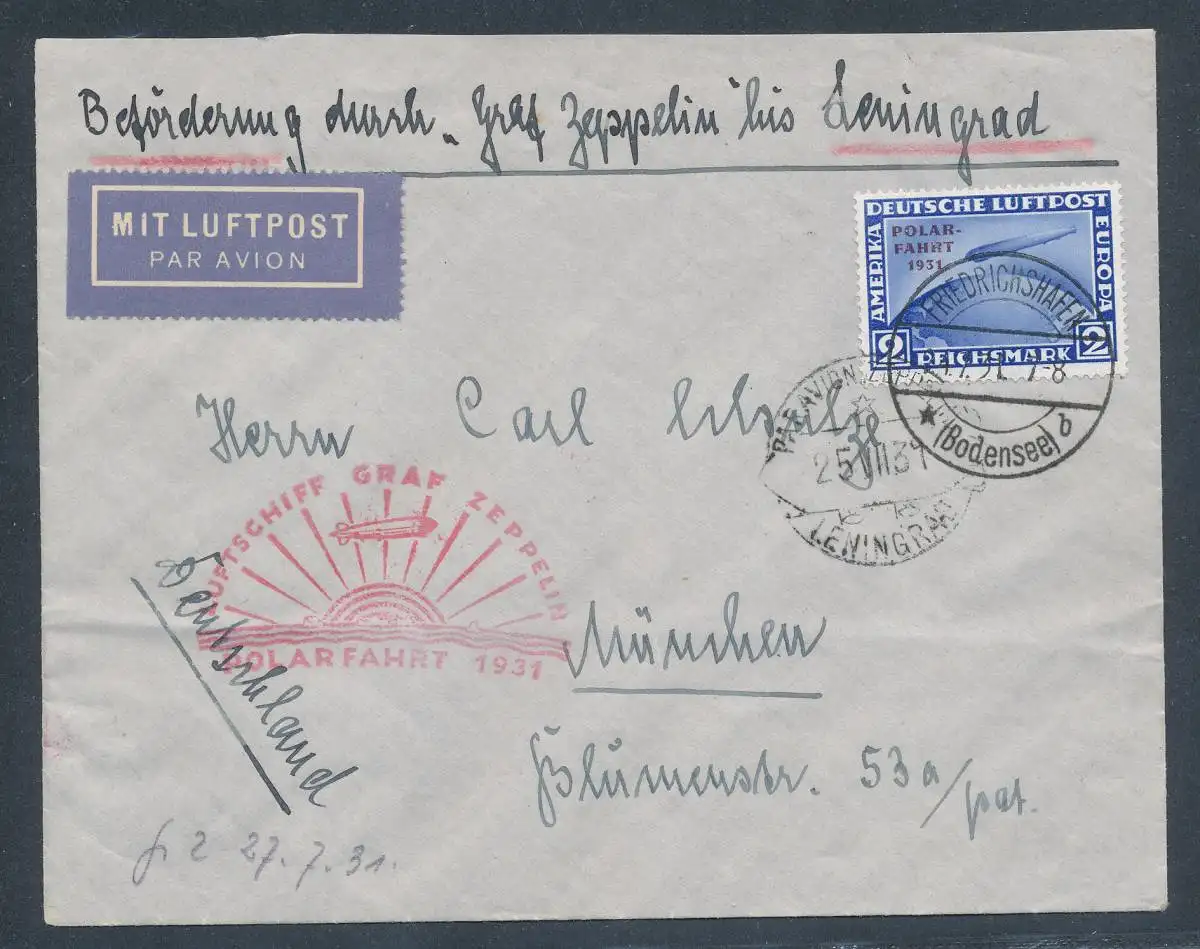 Beförderung durch „Graf Zeppelin" bis Leningrad
MIT LUFTPOST
PAR AVION
DEUTSCHE LUFTPOST
AMERIKA
EUROPA
POLAR-
FAHRT
1931
2 REICHSMARK 2
FRIEDRICHSHAFEN
7.31. 7-8
(Bodensee) b
PAR AVION
25 VII 31
LENINGRAD
Herrn Carl
LUFTSCHIFF GRAF ZEPPELIN
POLARFAHRT 1931
Deutschland
München
Blumenstr. 53a/
27.7.31.